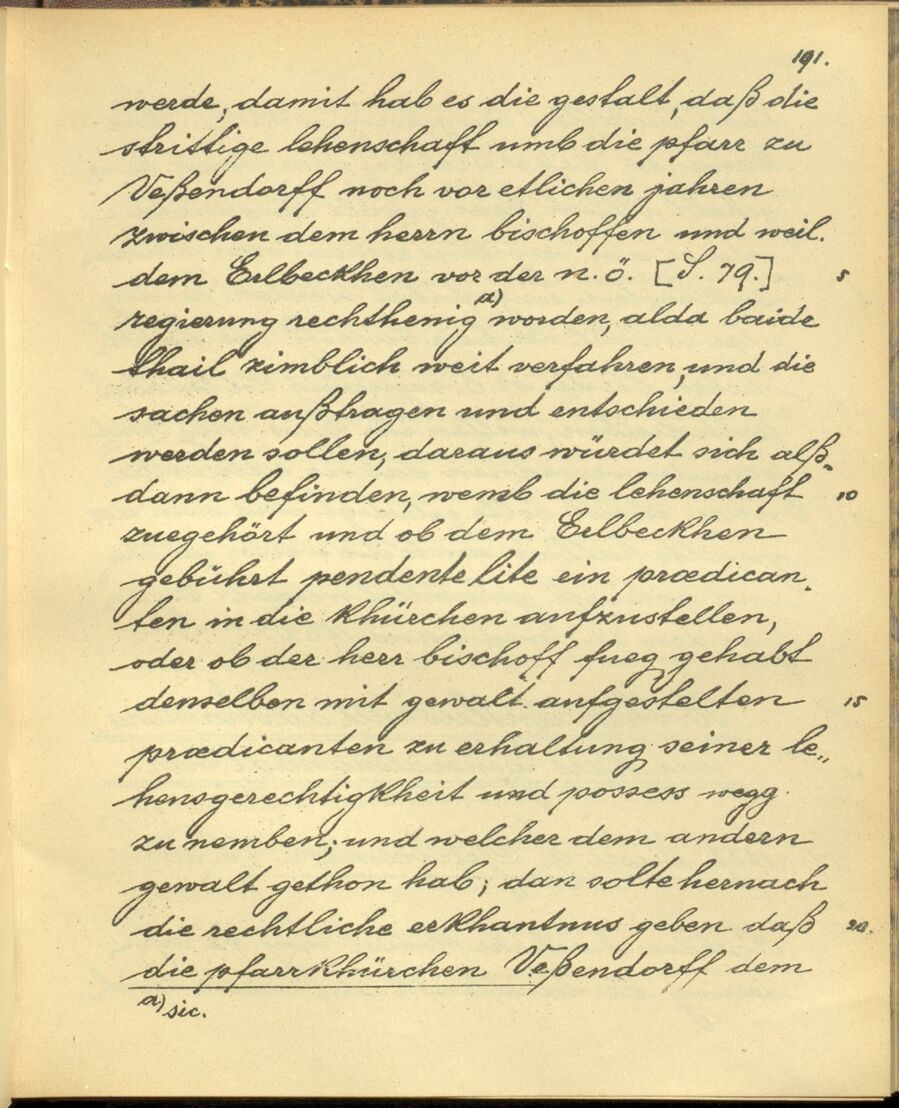 191.
werde, damit hab es die gestalt, daß die
strittige lehenschaft umb die pfarr zu
Veßendorff noch vor etlichen jahren
zwischen dem herrn bischoffen und weil.
dem Erlbeckhen vor der n. ö. [S. 79.] 5
regierung rechthenig a) worden, alda baide
thail zimblich weit verfahren, und die
sachen außtragen und entschieden
werden sollen, daraus würdet sich alß-
dann befinden, wemb die lehenschaft 10
zuegehört und ob dem Erlbeckhen
gebührt pendente lite ein prædican-
ten in die khürchen aufzustellen,
oder ob der herr bischoff fueg gehabt
denselben mit gewalt aufgestelten 15
prædicanten zu erhaltung seiner le„
hensgerechtigkheit und possess wegg
zu nemben; und welcher dem andern
gewalt gethon hab; dan solte hernach
die rechtliche erkhantnus geben daß 20.
die pfarrkhürchen Veßendorff dem
a) sic.